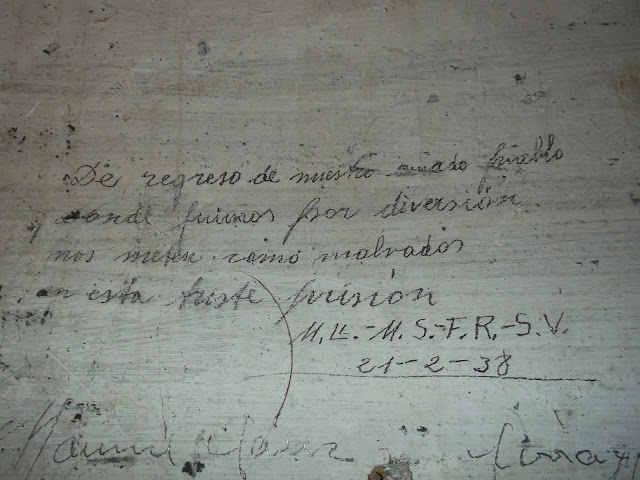 De regreso de nuestro amado pueblo
donde fuimos por diversión
nos meten como malvados
en esta triste prisión
M. Ll.-M. S.-F. R.-S. V.
21-2-38
Manuel